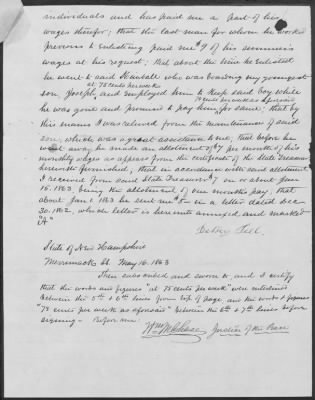 individuals and has paid me a part of his
wages therefor; that the last man for whom he worked
previous to enlisting paid me $9 of his summer's
wages at his request; that about the time he enlisted
he went to said Kimball who was boarding my youngest
at 75 cents per week
son Joseph, and employed him to keep said boy while
75 cents per week as aforesaid
he was gone and promised to pay him for same; that by
this means I was relieved from the maintenance of said
son, which was a great assistance to me, that before he
went away he made an allotment of $7 per month of his
monthly wages as appears from the certificate of the State Treasurer
herewith furnished, that in accordance with said allotment
I received from said State Treasurer $7 on or about Jan
16. 1863, being the allotment of one month's pay, that
about Jan 1 1863 he sent me $5 in a letter dated Dec
30. 1862, which letter is hereunto annexed and marked
"A"
State of New Hampshire
Merrimack ss. May 16. 1863
Then subscribed and sworn to, and I certify
that the words and figures "at 75 cents per week" were interlined
between the 5th & 6th lines from top of page and the words & figures
"75 cents per week as aforesaid" between the 6th & 7th lines before
signing. Before me
Wm M Chase Justice of the Peace